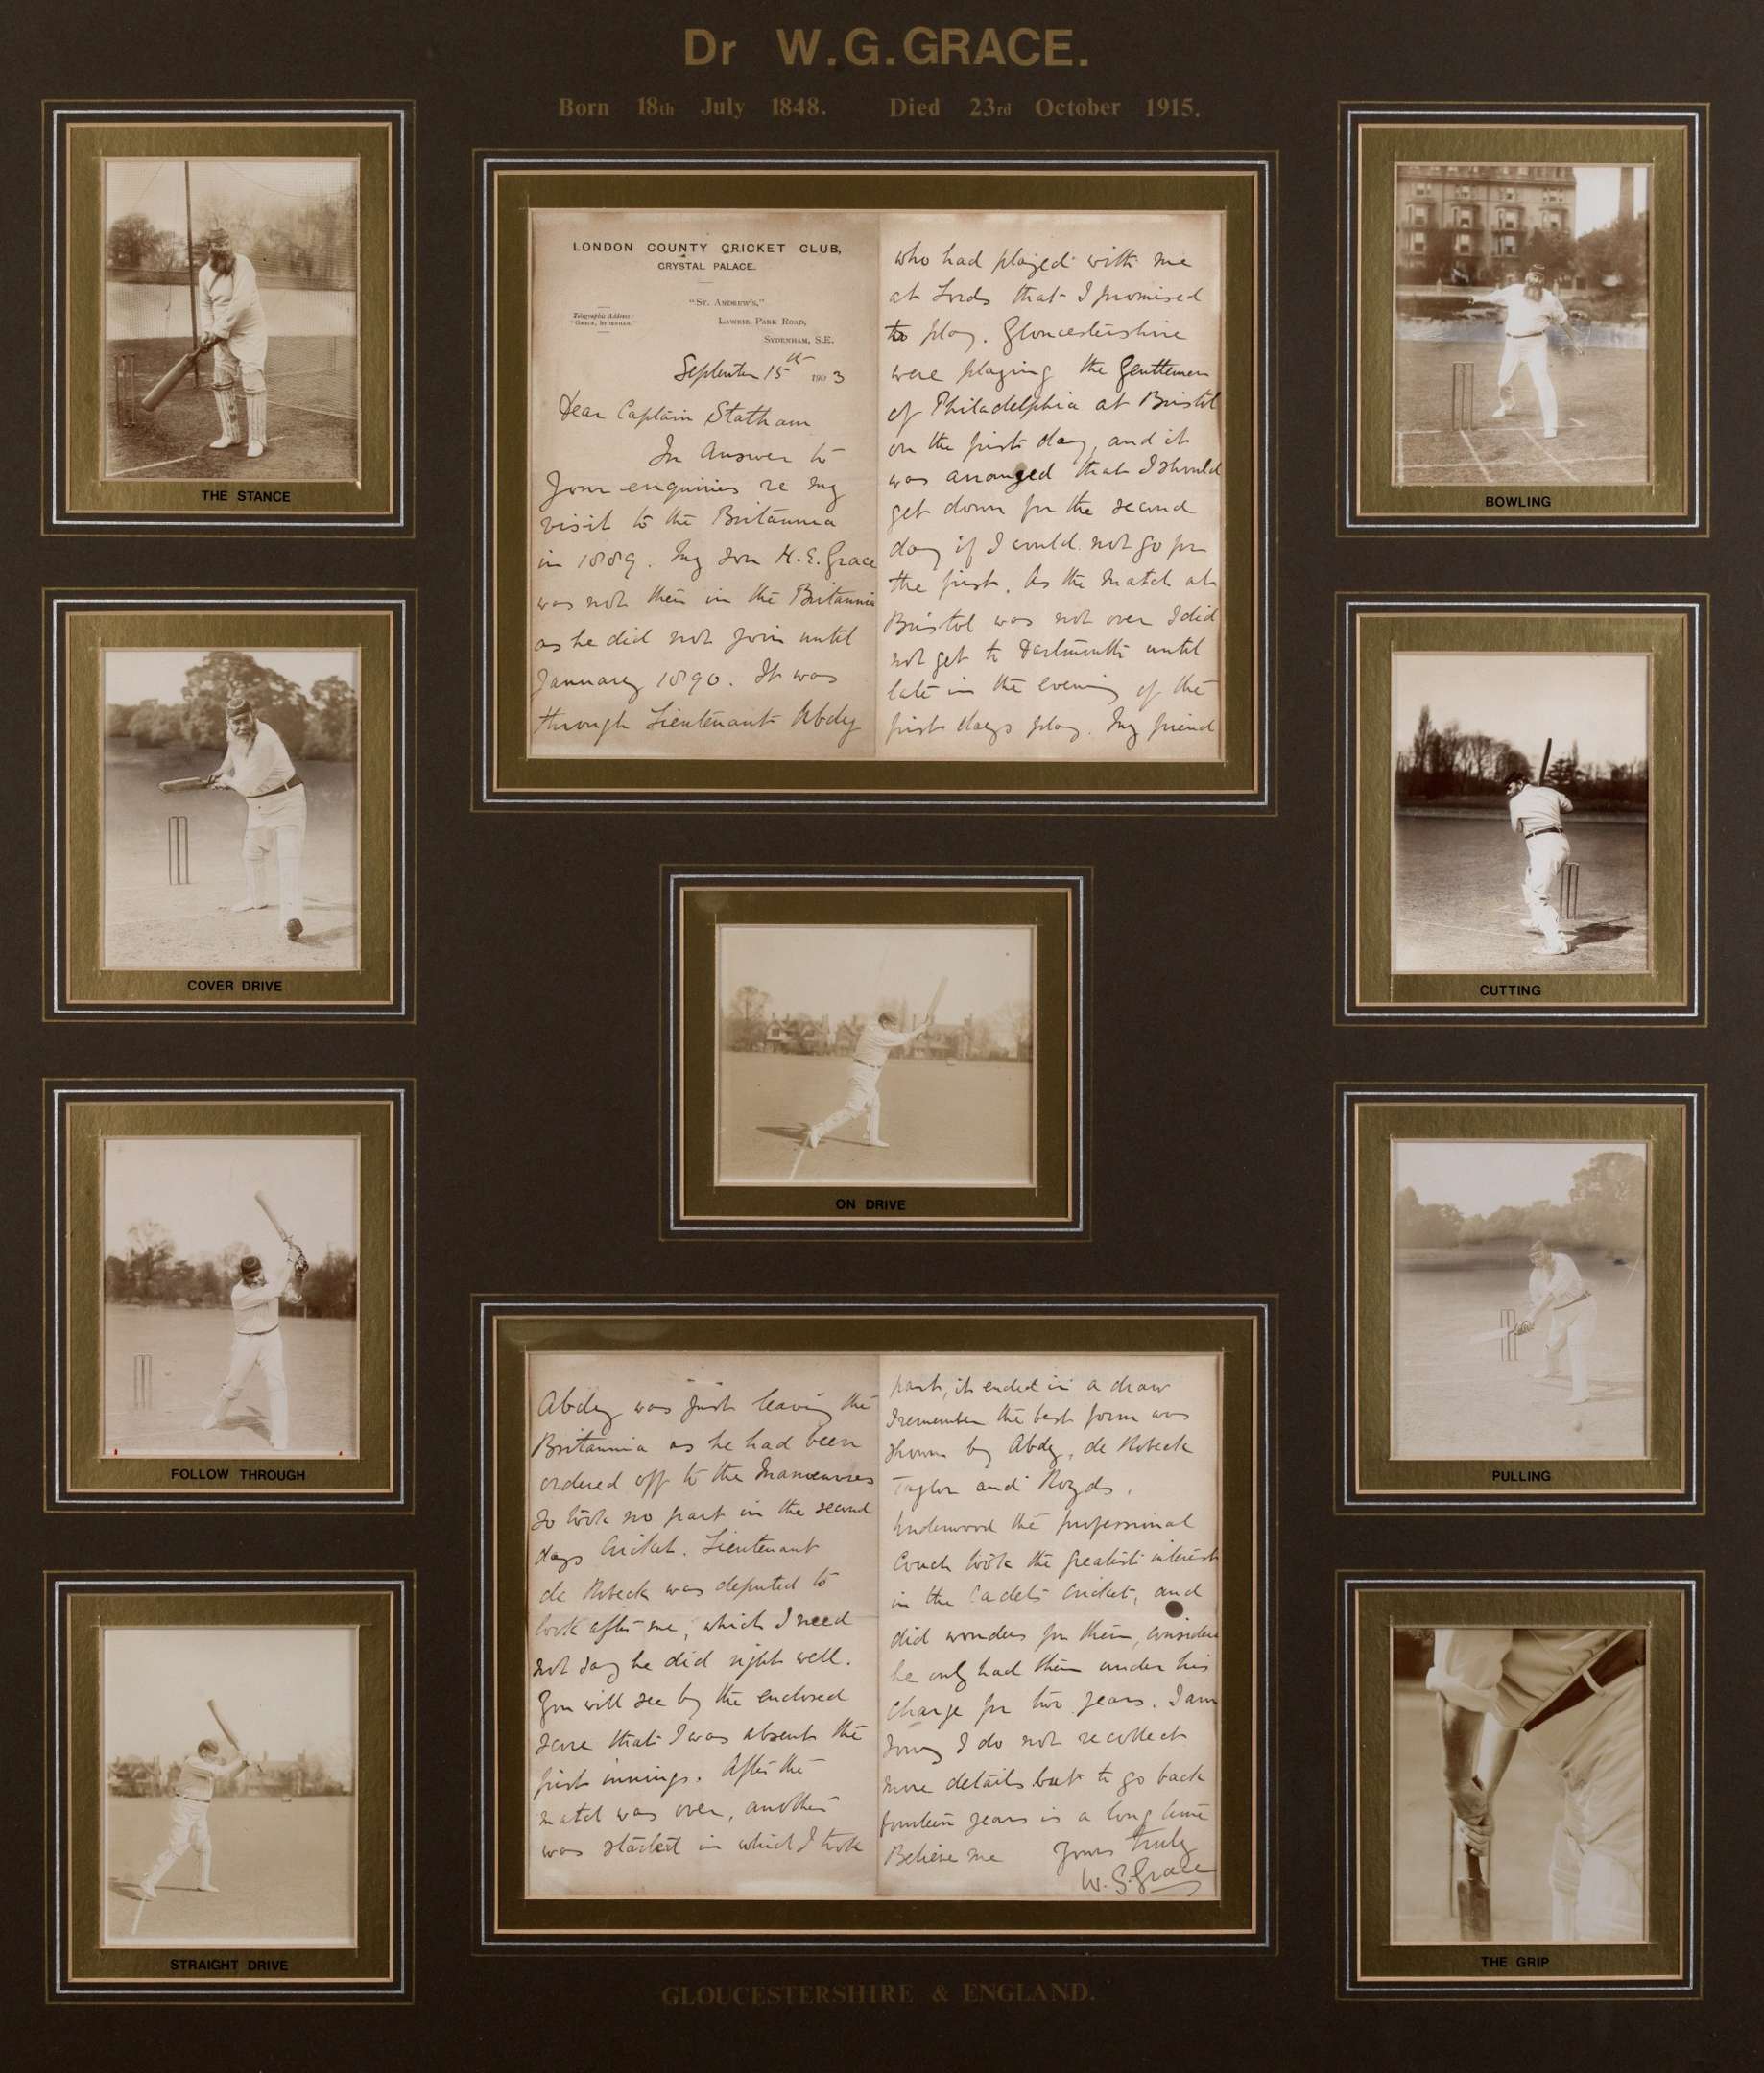 Dr W.G.GRACE.
Born 18th July 1848. Died 23rd October 1915.
THE STANCE
COVER DRIVE
FOLLOW THROUGH
STRAIGHT DRIVE
LONDON COUNTY CRICKET CLUB,
CRYSTAL PALACE.
"St. Andrew's,"
Telegraphic Address:
"Grace, Sydenham."
Lawrie Park Road,
Sydenham, S.E.
September 15th 1903
Dear Captain Statham
In Answer to
your enquiries re my
visit to the Britannia
in 1889. My son H.E. Grace
was not then in the Britannia
as he did not join until
January 1890. It was
through Lieutenant Abdy
who had played with me
at Lords that I promised
to play. Gloucestershire
were playing the Gentlemen
of Philadelphia at Bristol
on the first day, and it
was arranged that I should
get down for the second
day if I could not go for
the first. As the match at
Bristol was not over I did
not get to Dartmouth until
late in the evening of the
first days play. My friend
ON DRIVE
Abdy was just leaving the
Britannia as he had been
ordered off to the Manoeuvres
so took no part in the second
days Cricket. Lieutenant
de Robeck was deputed to
look after me, which I need
not say he did right well.
You will see by the enclosed
score that I was absent the
first innings. After the
match was over, another
was started in which I took
part, it ended in a draw
I remember the best form was
shown by Abdy, de Robeck
Taylor and Royds.
Underwood the professional
Coach took the greatest interest
in the Cadets Cricket, and
did wonders for them, consider
he only had them under his
charge for two years. I am
sorry I do not recollect
more details but to go back
fourteen years is a long time
Believe me Yours truly
W. G. Grace
BOWLING
CUTTING
PULLING
THE GRIP
GLOUCESTERSHIRE & ENGLAND.